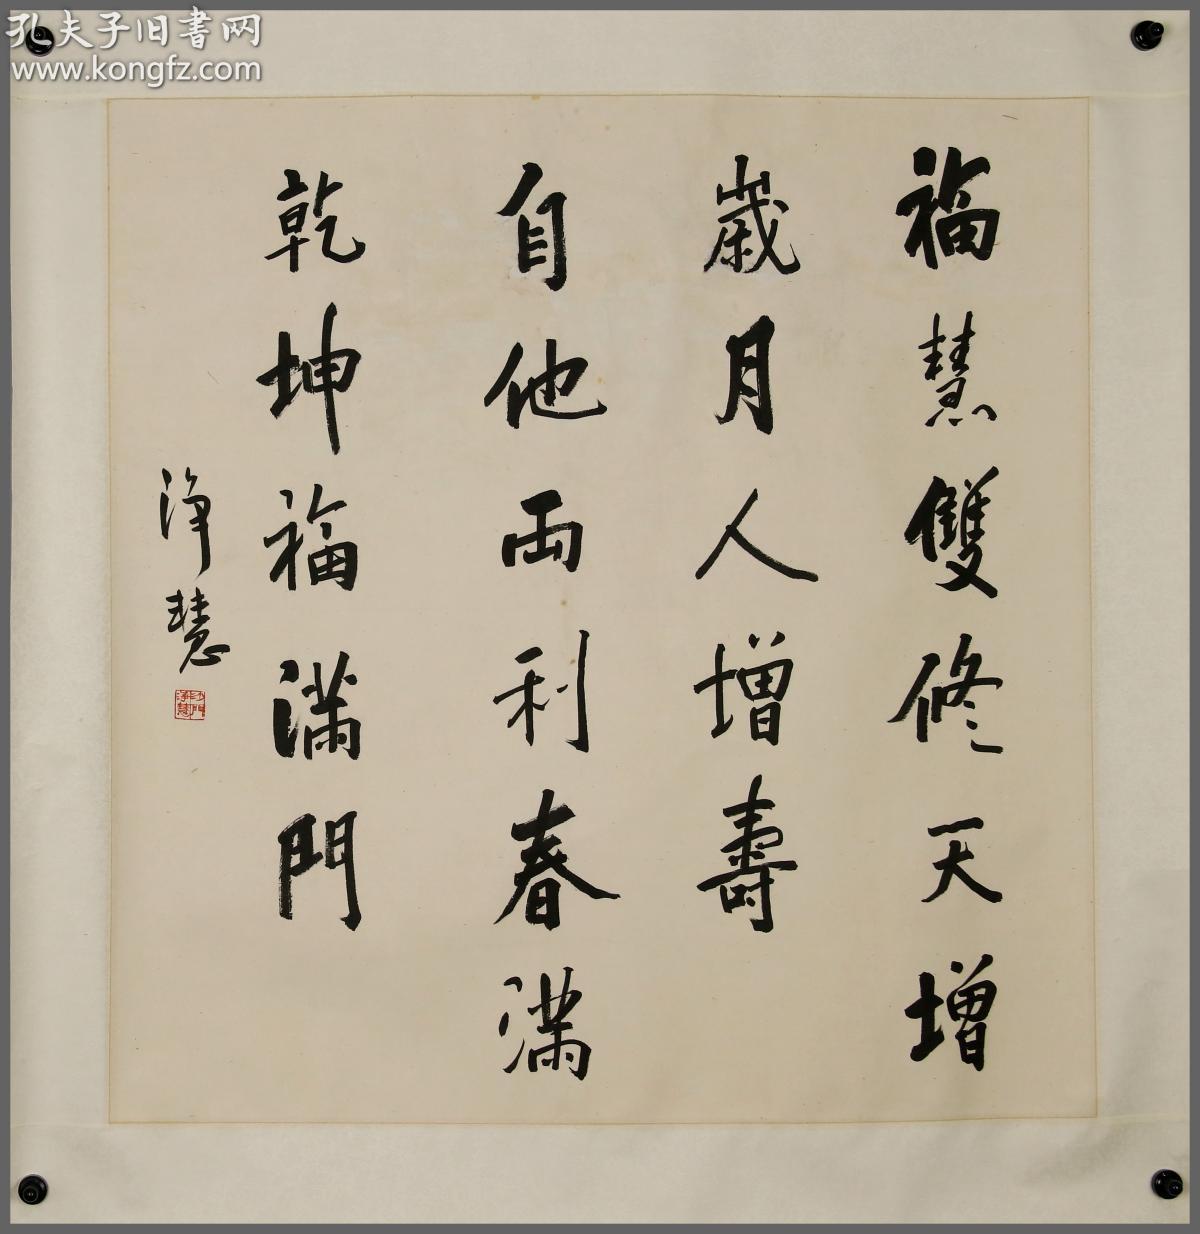 孔夫子旧書网
www.kongfz.com
福慧雙修天增
歲月人增壽
自他両利春滿
乾坤福滿門
淨慧
沙門淨慧